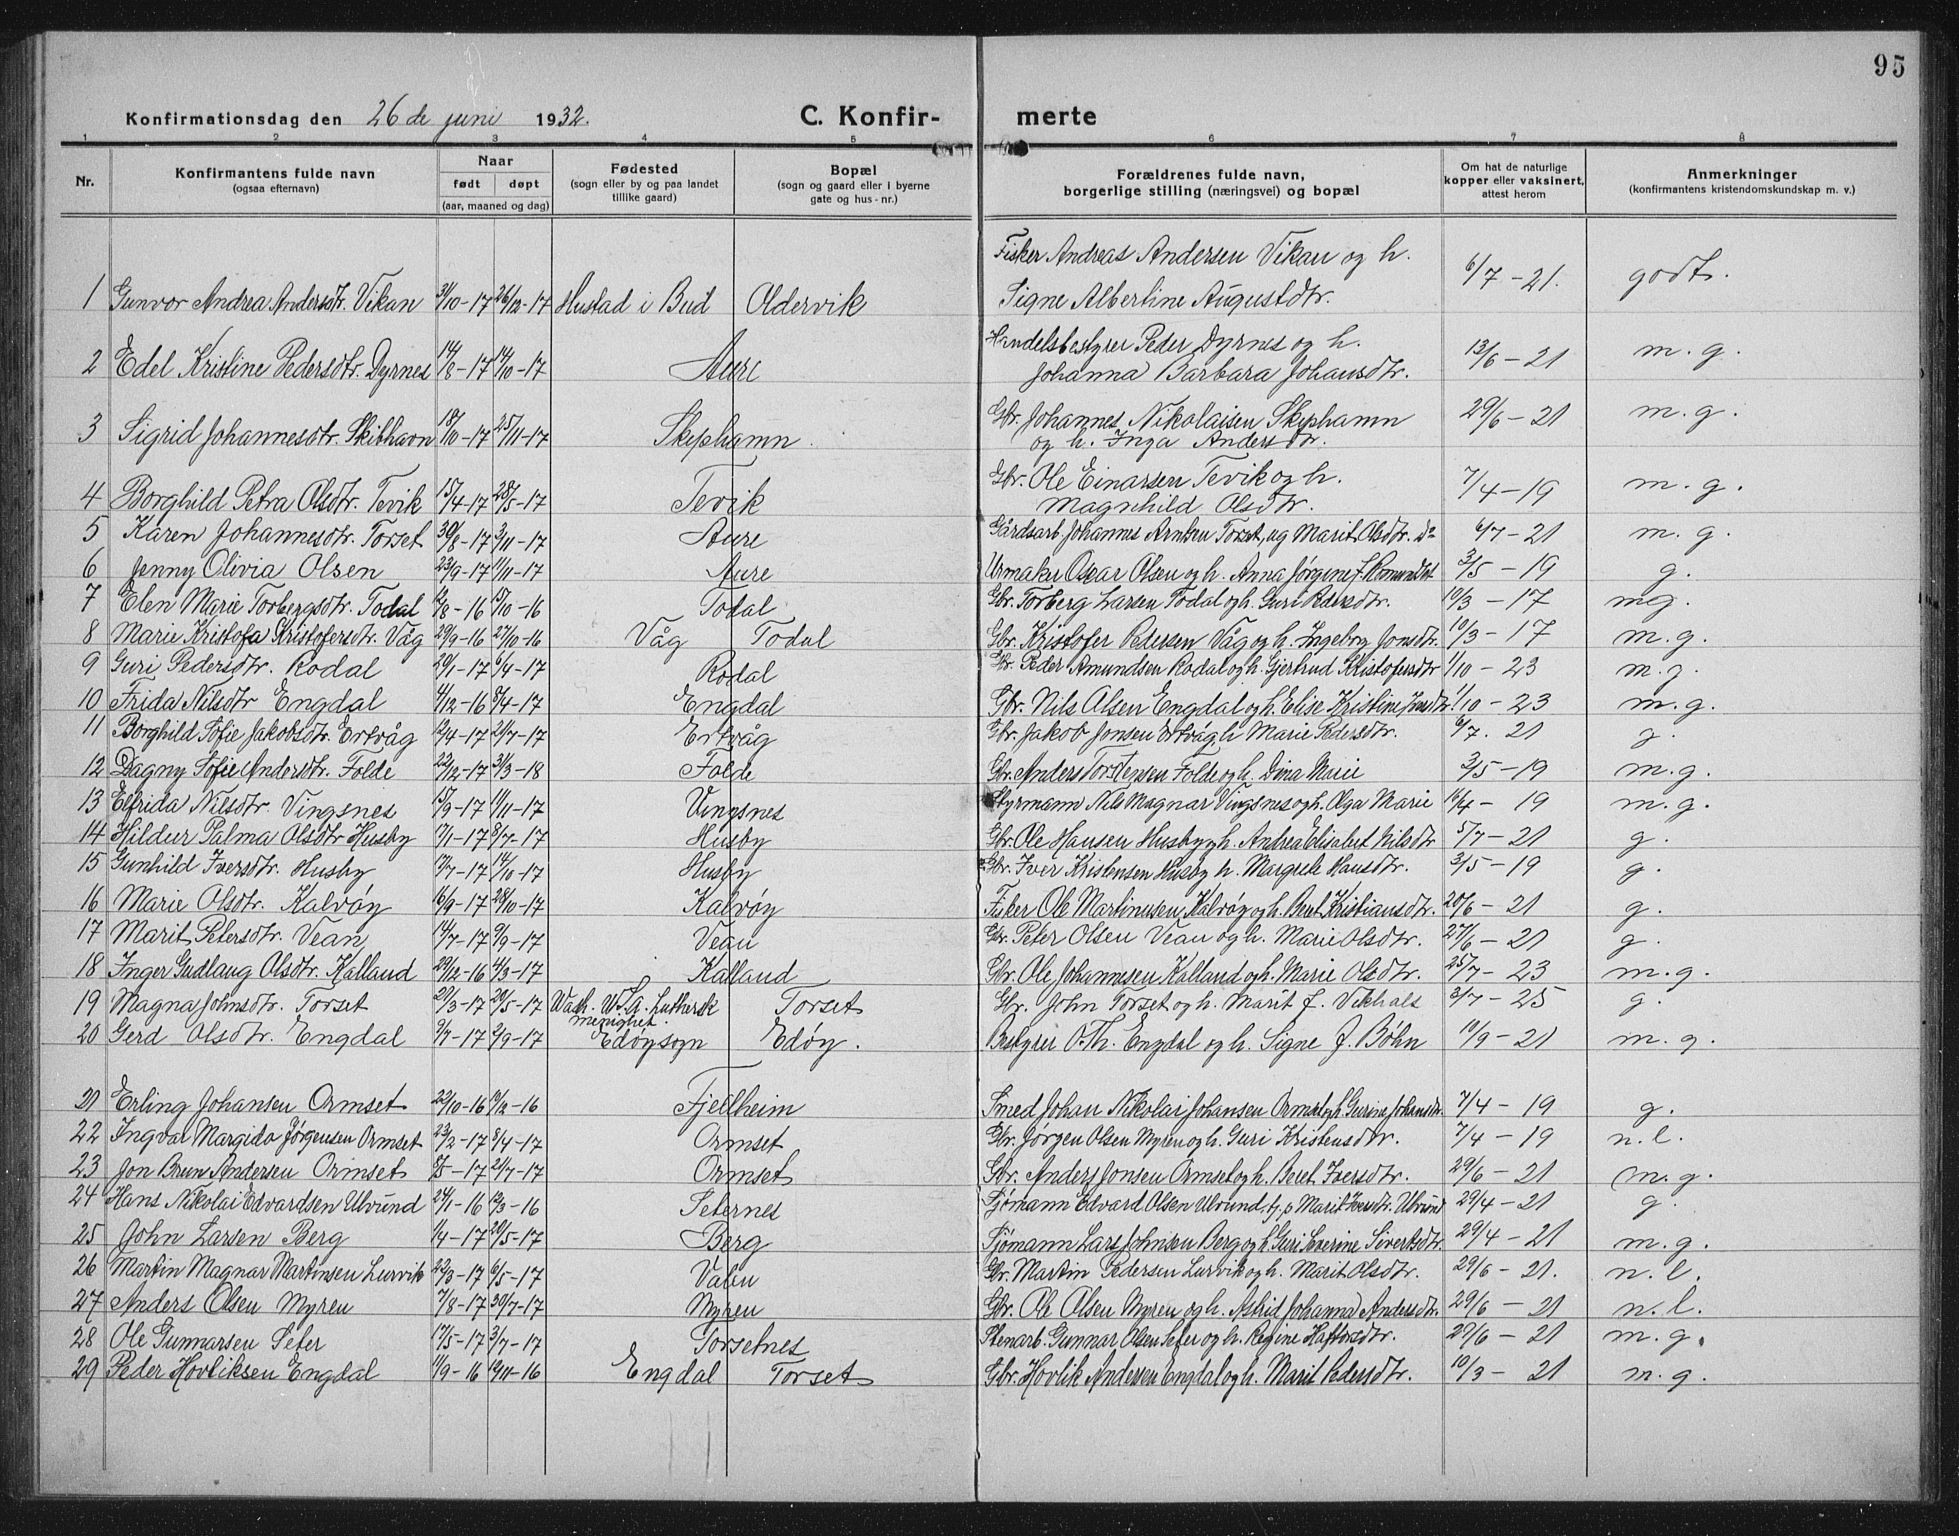 95
Konfirmationsdag den 26 de juni 1932. C. Konfir- merte
1 2 3 4 5 6 7 8
Nr. Konfirmantens fulde navn (ogsaa efternavn) Naar født døpt (aar, maaned og dag) Fødested (sogn eller by og paa landet tillike gaard) Bopæl (sogn og gaard eller i byerne gate og hus-nr.) Forældrenes fulde navn, borgerlige stilling (næringsvei) og bopæl Om hat de naturlige kopper eller vaksinert, attest herom Anmerkninger (konfirmantens kristendomskundskap m. v.)
1 Gunvor Andrea Andersdtr. Vikan 31/10-17 26/12-17 Hustad i Bud Oldervik Fisker Andreas Andersen Vikan og h. Signe Albertine Augustdtr. 6/7-21. godt.
2 Edel Kristine Pedersdtr. Dyrnes 14/8-17 14/10-17 Aure Handelsbestyrer Peder Dyrnes og h. Johanna Barbara Johansdtr. 13/6-21 m.g.
3 Sigrid Johannesdtr. Skibhavn 18/10-17 25/11-17 Skiphamn Gbr. Johannes Nikolaisen Skiphamn og h. Inga Andersdtr. 29/6-21 m.g.
4 Borghild Petra Olsdtr. Tevik 15/4-17 28/5-17 Tevik Gbr. Ole Einarsen Tevik og h. Magnhild Olsdtr. 7/4-19 m.g.
5 Karen Johannesdtr. Torset 30/8-17 3/11-17 Aure Gårdsarb. Johannes Arntsen Torset, ug Marit Olsdtr. do 6/7-21 m.g.
6 Jenny Olivia Olsen 23/9-17 11/11-17 Aure Urmaker Oscar Olsen og h. Anna Jørgine f. Romundset 3/5-19 g.
7 Elen Marie Torbergsdtr. Todal 12/8-16 15/10-16 Todal Gbr. Torberg Larsen Todal og h. Guri Pedersdtr. 10/3-17 mg.
8 Marie Kristofa Kristofersdtr. Våg 29/9-16 27/10-16 Våg Todal Gbr. Kristofer Pedersen Våg og h. Ingeborg Jonsdtr. 10/3-17 m.g.
9 Guri Pedersdtr. Rodal 29/1-17 6/4-17 Rodal Gbr. Peder Amundsen Rodal og h. Gjertrud Kristofersdtr 1/10-23 m.g.
10 Frida Nilsdtr Engdal 4/12-16 8/4-17 Engdal Gbr. Nils Olsen Engdal og h. Elise Kristine Iversdtr 1/10-23 m.g.
11 Borghild Sofie Jakobsdtr. Ertvåg 12/4-17 21/7-17 Ertvåg Gbr. Jakob Jonsen Ertvåg, h Marie Pedersdtr. 6/7. 21 g.
12 Dagny Sofie Andersdtr. Folde 22/12-17 31/3-18 Folde Gbr. Anders Torstensen Folde og h. Dina Marie 3/5-19 m.g.
13 Elfrida Nilsdtr. Vingsnes 15/9-17 11/11-17 Vingsnes Styrmann Nils Magnar Vingsnes og h. Olga Marie 16/4-19 m.g.
14 Hildur Palma Olsdtr Husby 17/1-17 8/7-17 Husby Gbr. Ole Hansen Husby og h. Andrea Elisabet Nilsdtr 5/7-21 g.
15 Gunhild Iversdtr. Husby 17/7-17 14/10-17 Husby Gbr. Iver Kristensen Husby h. Margrete Hansdtr. 3/5-19 g.
16 Marie Olsdtr. Kalvøy 16/9-17 28/10-17 Kalvøy Fisker Ole Martinusen Kalvøy og h. Beret Kristiansdtr. 20/6-21 g.
17 Marit Petersdtr. Vean 14/7-17 9/9-17 Vean Gbr. Peter Olsen Vean og h. Marie Olsdtr. 27/6-21 g.
18 Inger Gudlaug Olsdtr. Kalland 29/12-16 4/3-17 Kalland Gbr. Ole Johannesen Kalland og h. Marie Olsdtr. 25/7-23 m.g.
19 Magna Johnsdtr. Torset 21/3-17 20/5-17 Wash. U.S.A. Luthersk menighet. Torset Gbr. John Torset og h. Marit f. Vikhals 3/7-25 g.
20 Gerd Olsdtr. Engdal 9/7-17 2/9-17 Edøysogn Edøy. Bestyrer O.Th. Engdal og h. Signe f. Bøhn 10/9-21 m.g.
21 Erling Johansen Ormset 22/10-16 10/12-16 Fjellheim Smed Johan Nikolai Johansen Ormset og h. Gurina Johansdtr. 7/4-19 g.
22 Ingvar Margido Jørgensen Ormset 23/2-17 8/4-17 Ormset Gbr. Jørgen Olsen Myren og h. Guri Kristensdtr. 7/4-19 n.l.
23 Jon Brun Andersen Ormset 8/5-17 21/7-17 Ormset Gbr. Anders Jonsen Ormset og h. Beret Iversdtr. 29/6-21 m.g.
24 Hans Nikolai Edvardsen Ulvund 24/1-16 12/3-16 Seternes Sjømann Edvard Olsen Ulvund, Marit Iversdtr. Ulvund 29/4-21 g.
25 John Larsen Berg 1/4-17 20/5-17 Berg Sjømann Lars Johnsen Berg og h. Guri Severine Sivertsdtr. 29/4-21 m.g.
26 Martin Magnar Martinsen Lurvik 22/3-17 6/5-17 Valen Gbr. Martin Pedersen Lurvik og h. Marit Olsdtr. 29/6-21. n.l.
27 Anders Olsen Myren 7/8-17 30/7-17 Myren Gbr. Ole Olsen Myren og h. Astrid Johanna Andersdtr. 29/6-21 n.l.
28 Ole Gunnarsen Seter 17/5-17 3/7-17 Torsetnes Stenarb. Gunnar Olsen Seter og h. Regine Haftorsdtr. 29/6-21 m.g.
29 Peder Hovliksen Engdal 11/9-16 12/11-16 Engdal Torset Gbr. Hovlik Andersen Engdal og h. Marit Pedersdtr. 10/3-21 m.g.